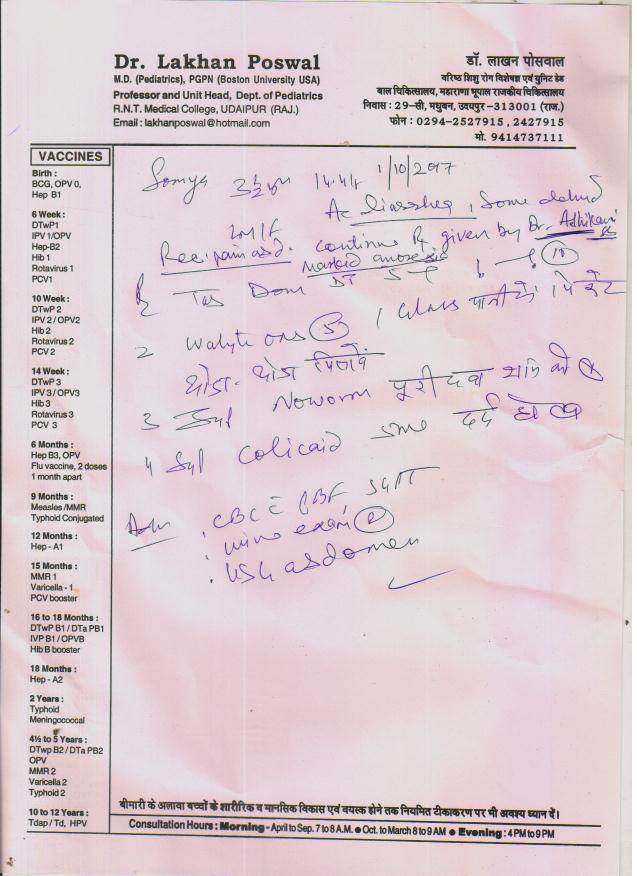 Dr. Lakhan Poswal
M.D. (Pediatrics), PGPN (Boston University USA)
Professor and Unit Head, Dept. of Pediatrics
R.N.T. Medical College, UDAIPUR (RAJ.)
Email : lakhanposwal@hotmail.com
डॉ. लाखन पोसवाल
वरिष्ठ शिशु रोग विशेषज्ञ एवं युनिट हेड
बाल चिकित्सालय, महाराणा भूपाल राजकीय चिकित्सालय
निवास : 29-सी, मधुबन, उदयपुर -313001 (राज.)
फोन : 0294-2527915, 2427915
मो. 9414737111
VACCINES
Birth :
BCG, OPV 0,
Hep B1
6 Week :
DTwP1
IPV 1/OPV
Hep-B2
Hib 1
Rotavirus 1
PCV1
10 Week :
DTwP 2
IPV 2 / OPV2
Hib 2
Rotavirus 2
PCV 2
14 Week :
DTwP 3
IPV 3 / OPV3
Hib 3
Rotavirus 3
PCV 3
6 Months :
Hep B3, OPV
Flu vaccine, 2 doses
1 month apart
9 Months :
Measles /MMR
Typhoid Conjugated
12 Months :
Hep - A1
15 Months :
MMR 1
Varicella - 1
PCV booster
16 to 18 Months :
DTwP B1 / DTa PB1
IVP B1 / OPVB
Hib B booster
18 Months :
Hep - A2
2 Years :
Typhoid
Meningococcal
4½ to 5 Years :
DTwp B2 / DTa PB2
OPV
MMR 2
Varicella 2
Typhoid 2
10 to 12 Years :
Tdap / Td, HPV
Somya 3½ 14.4 1/10/2017
Ac , Some
continue Rx given by Dr. Adhikari
Rec. pain asd. Marked anorexia
Rx Tab Dom DT 5 (10)
2 Walyte ORS (5) 1 Glass पानी में 1 पैकेट
थोडा - थोडा पिलावें
3 Syp Noworm पूरी दवा शाम को
4 Syp Colicaid दर्द हो
Adv . CBC c PBF, SGPT
. urine exam (R)
. USG abdomen
बीमारी के अलावा बच्चों के शारीरिक व मानसिक विकास एवं वयस्क होने तक नियमित टीकाकरण पर भी अवश्य ध्यान दें।
Consultation Hours : Morning - April to Sep. 7 to 8 A.M. ● Oct. to March 8 to 9 AM ● Evening : 4 PM to 9 PM